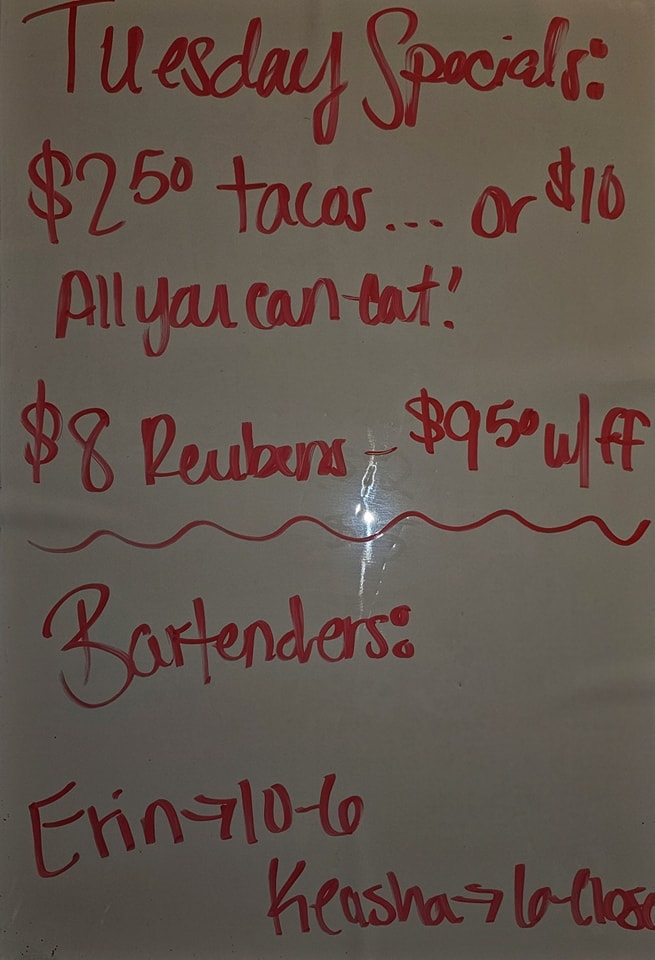 Tuesday Specials:
$2.50 tacos... or $10
All you can eat!
$8 Reubens - $9.50 w/ff
Bartenders:
Erin → 10-6
Keasha → 6-Close